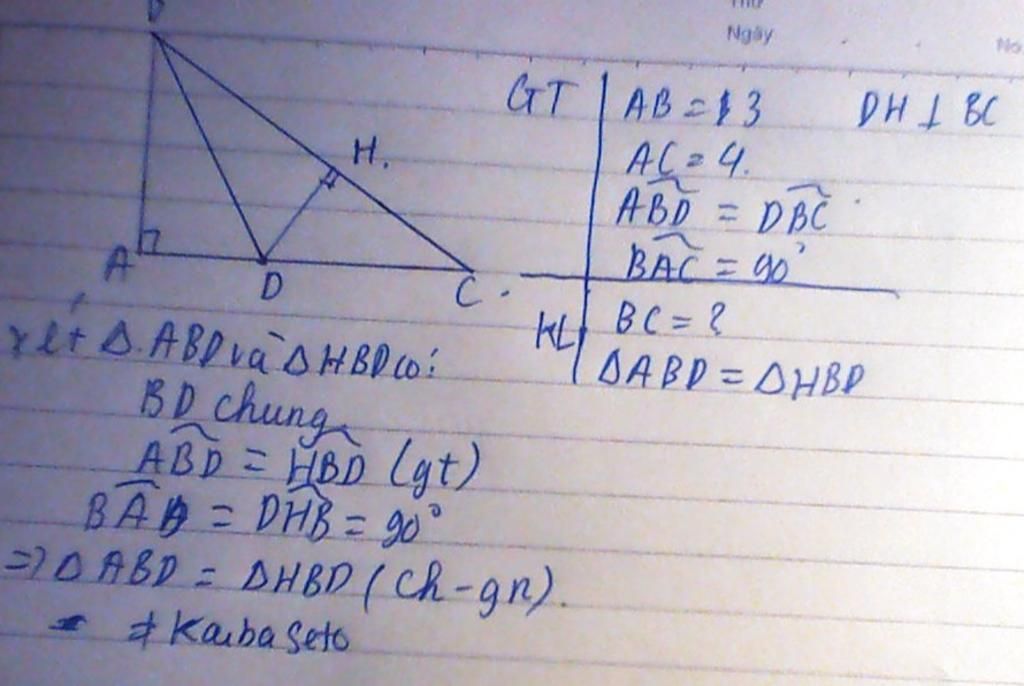 Thứ
Ngày
No
B
H.
A
D
C.
GT
AB = 3 DH ⊥ BC
AC = 4.
ABD = DBC
BAC = 90°
KL
BC = ?
ΔABD = ΔHBD
xét Δ ABD và ΔHBD có:
BD chung
ABD = HBD (gt)
BAD = DHB = 90°
=> Δ ABD = ΔHBD (ch-gn).
# Kaiba Seto